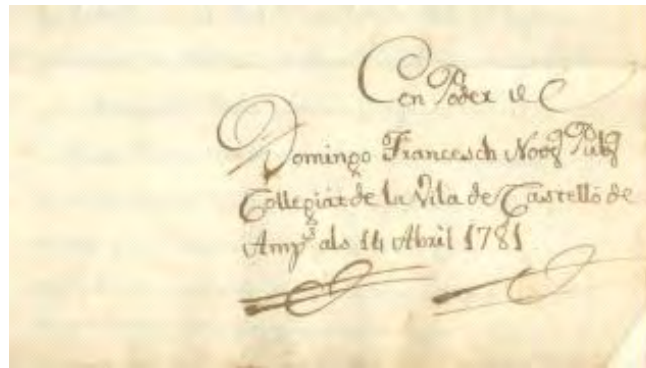 En Poder de
Domingo Francesch Notꝯ Pubꝯ
Collegiát de la Vila de Castelló de
Ampˢ als 14 Abril 1781